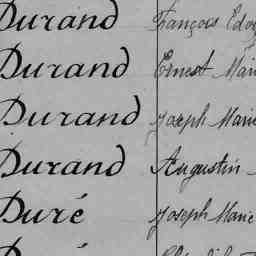 Durand François
Durand Ernest
Durand Joseph Marie
Durand Augustin
Duré Joseph Marie